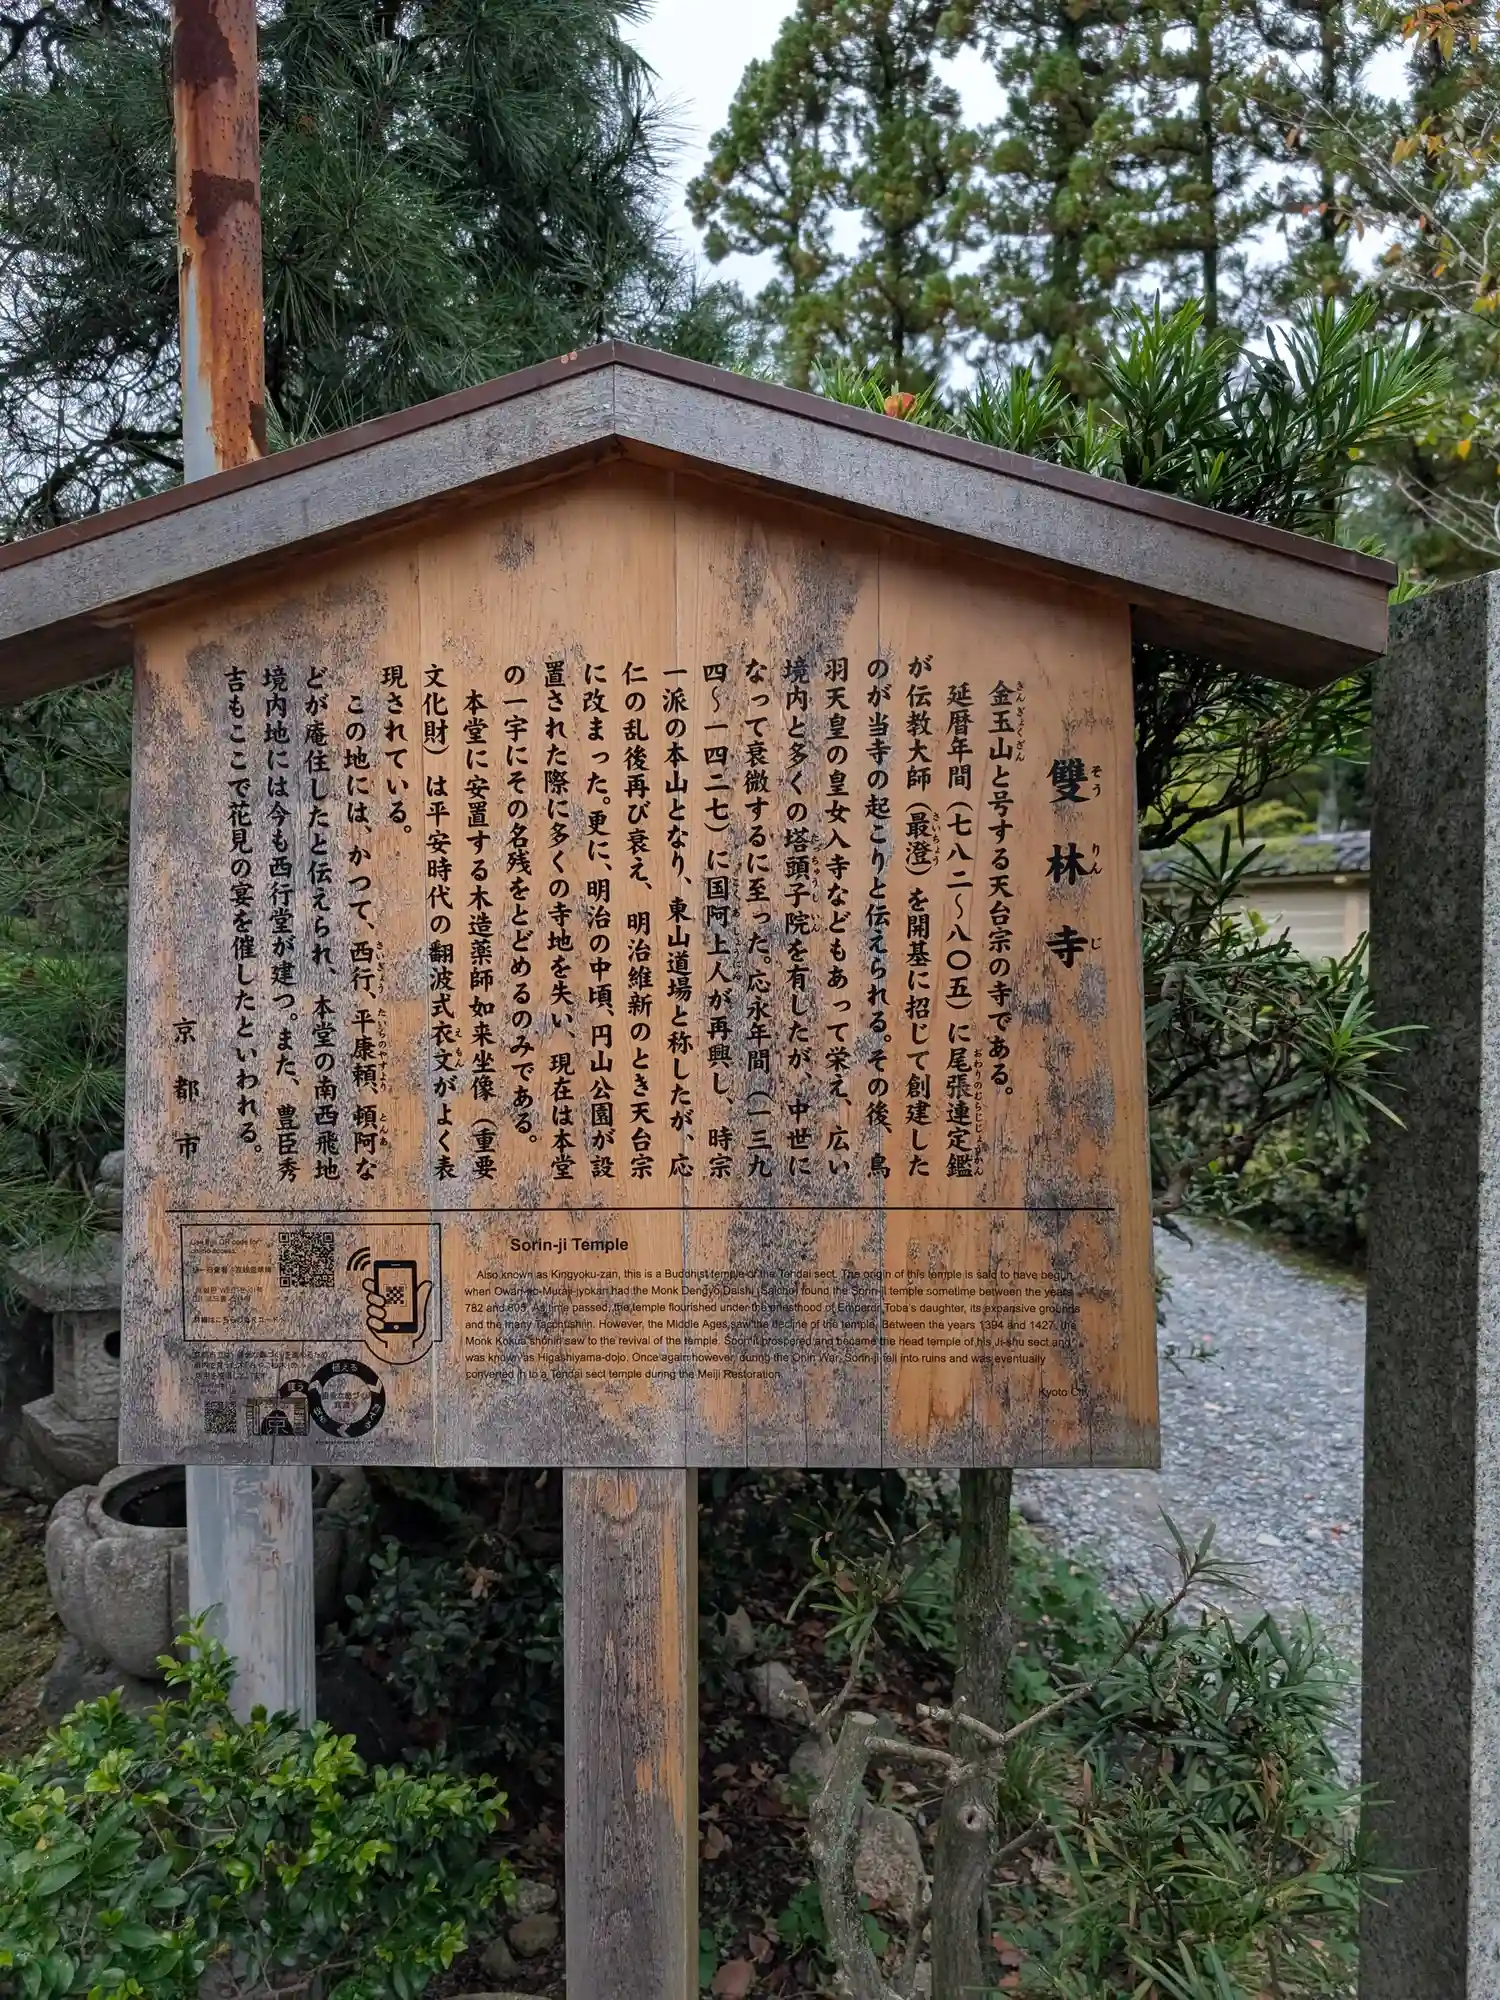 雙林寺
そうりんじ
金玉山と号する天台宗の寺である。
きんぎょくざん
延暦年間(七八二〜八〇五)に尾張連定鑑
おわりのむらじじょうかん
が伝教大師(最澄)を開基に招じて創建した
さいちょう
のが当寺の起こりと伝えられる。その後、鳥
羽天皇の皇女入寺などもあって栄え、広い
境内と多くの塔頭子院を有したが、中世に
たっちゅうしいん
なって衰微するに至った。応永年間(一三九
四〜一四二七)に国阿上人が再興し、時宗
一派の本山となり、東山道場と称したが、応
仁の乱後再び衰え、明治維新のとき天台宗
に改まった。更に、明治の中頃、円山公園が設
置された際に多くの寺地を失い、現在は本堂
の一宇にその名残をとどめるのみである。
本堂に安置する木造薬師如来坐像(重要
文化財)は平安時代の翻波式衣文がよく表
えもん
現されている。
この地には、かつて、西行、平康頼、頓阿な
さいぎょう たいらのやすより とんあ
どが庵住したと伝えられ、本堂の南西飛地
境内地には今も西行堂が建つ。また、豊臣秀
吉もここで花見の宴を催したといわれる。
京都市
Sorin-ji Temple
Also known as Kingyoku-zan, this is a Buddhist temple of the Tendai sect. The origin of this temple is said to have begun
when Owari-no-Muraji-jyokan had the Monk Dengyo Daishi (Saicho) found the Sorin-ji temple sometime between the years
782 and 805. As time passed, the temple flourished under the priesthood of Emperor Toba's daughter, its expansive grounds
and the many Tacchushiin. However, the Middle Ages saw the decline of the temple. Between the years 1394 and 1427, the
Monk Kokua shonin saw to the revival of the temple. Sorin-ji prospered and became the head temple of his Ji-shu sect and
was known as Higashiyama-dojo. Once again however, during the Onin War, Sorin-ji fell into ruins and was eventually
converted in to a Tendai sect temple during the Meiji Restoration.
Kyoto City
Use this QR code for
植える